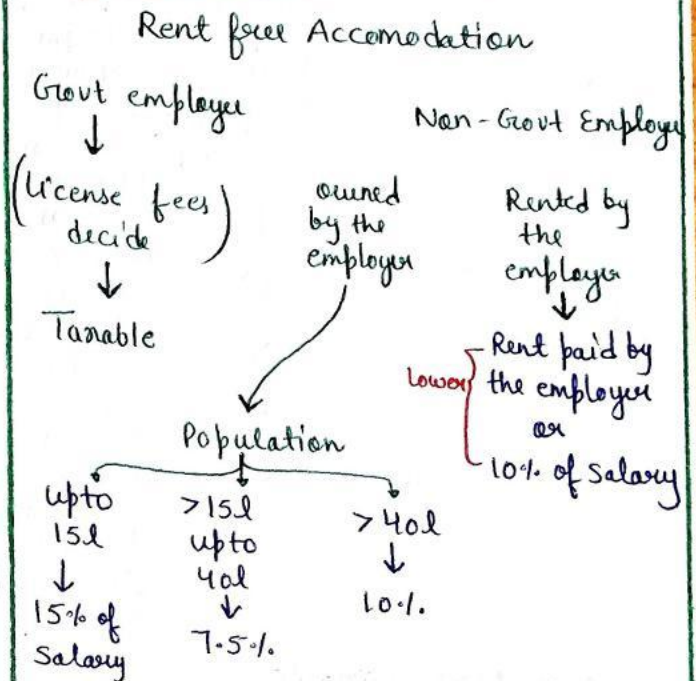 Rent free Accomodation
Govt employer
Non-Govt Employer
(License fees
decide)
Taxable
owned
by the
employer
Rented by
the
employer
Lower
Rent paid by
the employer
or
10% of Salary
Population
upto
15l
15% of
Salary
>15l
upto
40l
7.5%.
>40l
10%.